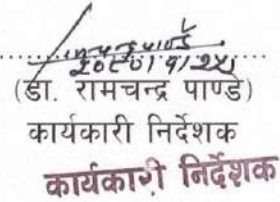 (डा. रामचन्द्र पाण्डे)
कार्यकारी निर्देशक
कार्यकारी निर्देशक